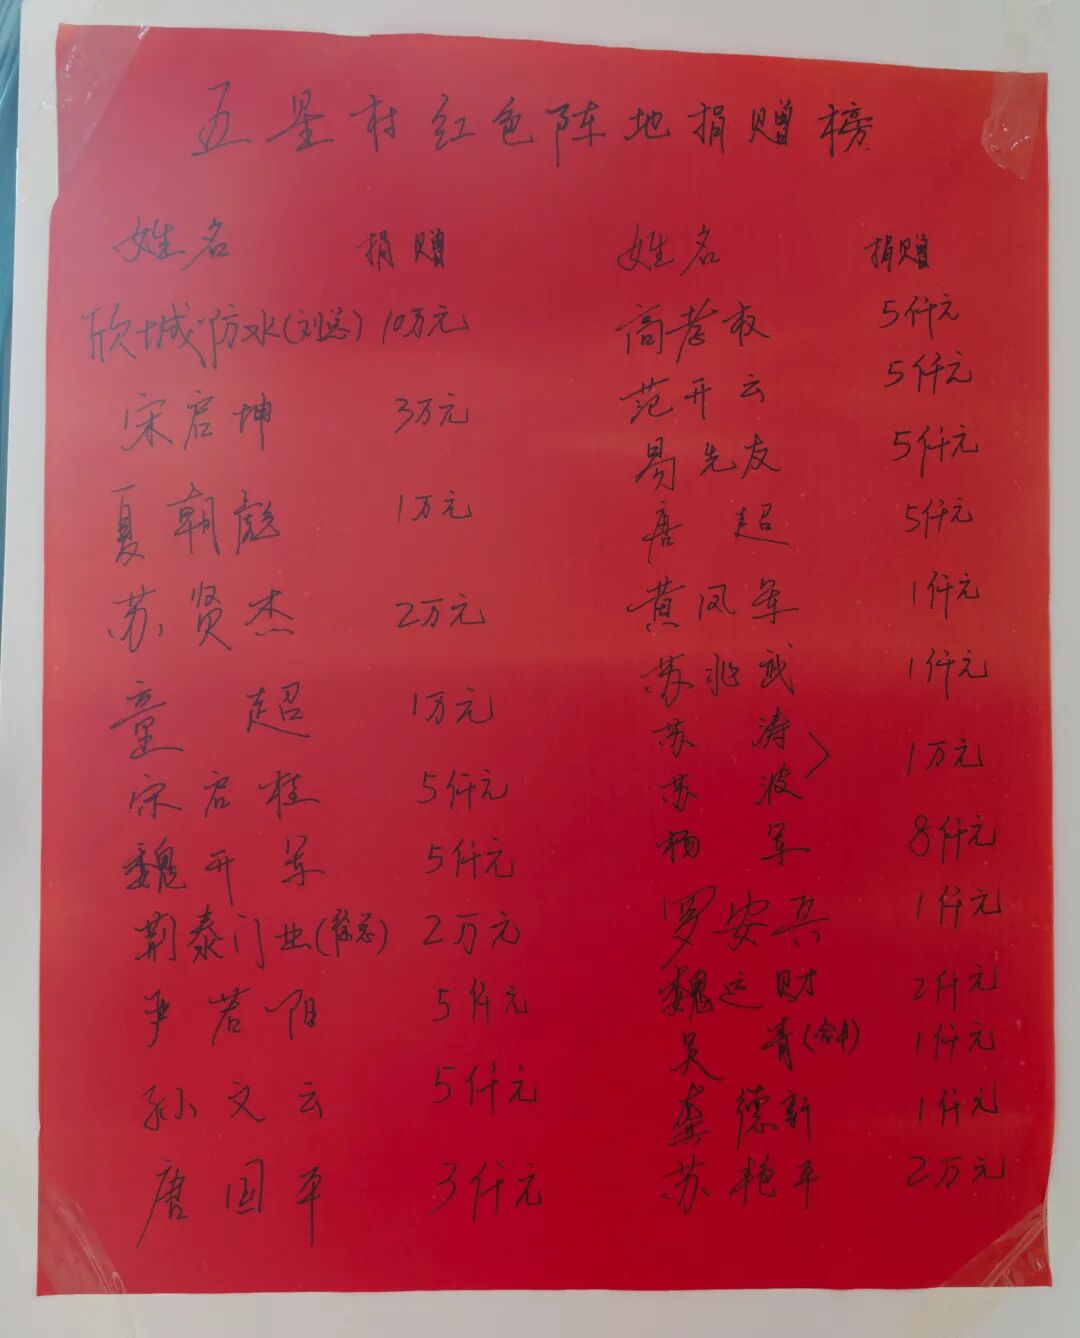 五星村红色阵地捐赠榜
姓名 捐赠 姓名 捐赠
欣城防水(刘总) 10万元
宋启坤 3万元
夏朝彪 1万元
苏贤杰 2万元
童超 1万元
宋启桂 5仟元
魏开军 5仟元
荆泰门业(徐总) 2万元
尹若阳 5仟元
孙文云 5仟元
唐国平 3仟元
高孝权 5仟元
范开云 5仟元
易先友 5仟元
唐超 5仟元
黄凤军 1仟元
苏兆武 1仟元
苏涛
苏波 1万元
杨军 8仟元
罗安兵 1仟元
魏运财 2仟元
吴青 1仟元
龚德新 1仟元
苏艳平 2万元